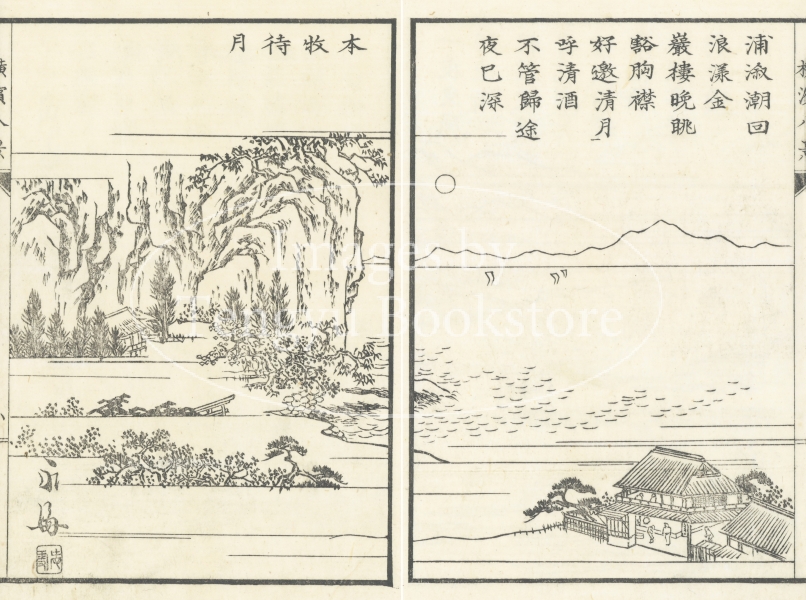 橫濱八景
浦溆潮回
浪漾金
巖樓晚眺
豁胸襟
好邀清月
呼清酒
不管歸途
夜已深
本牧待月
橫濱八景
Images by
Tengyu Bookstore